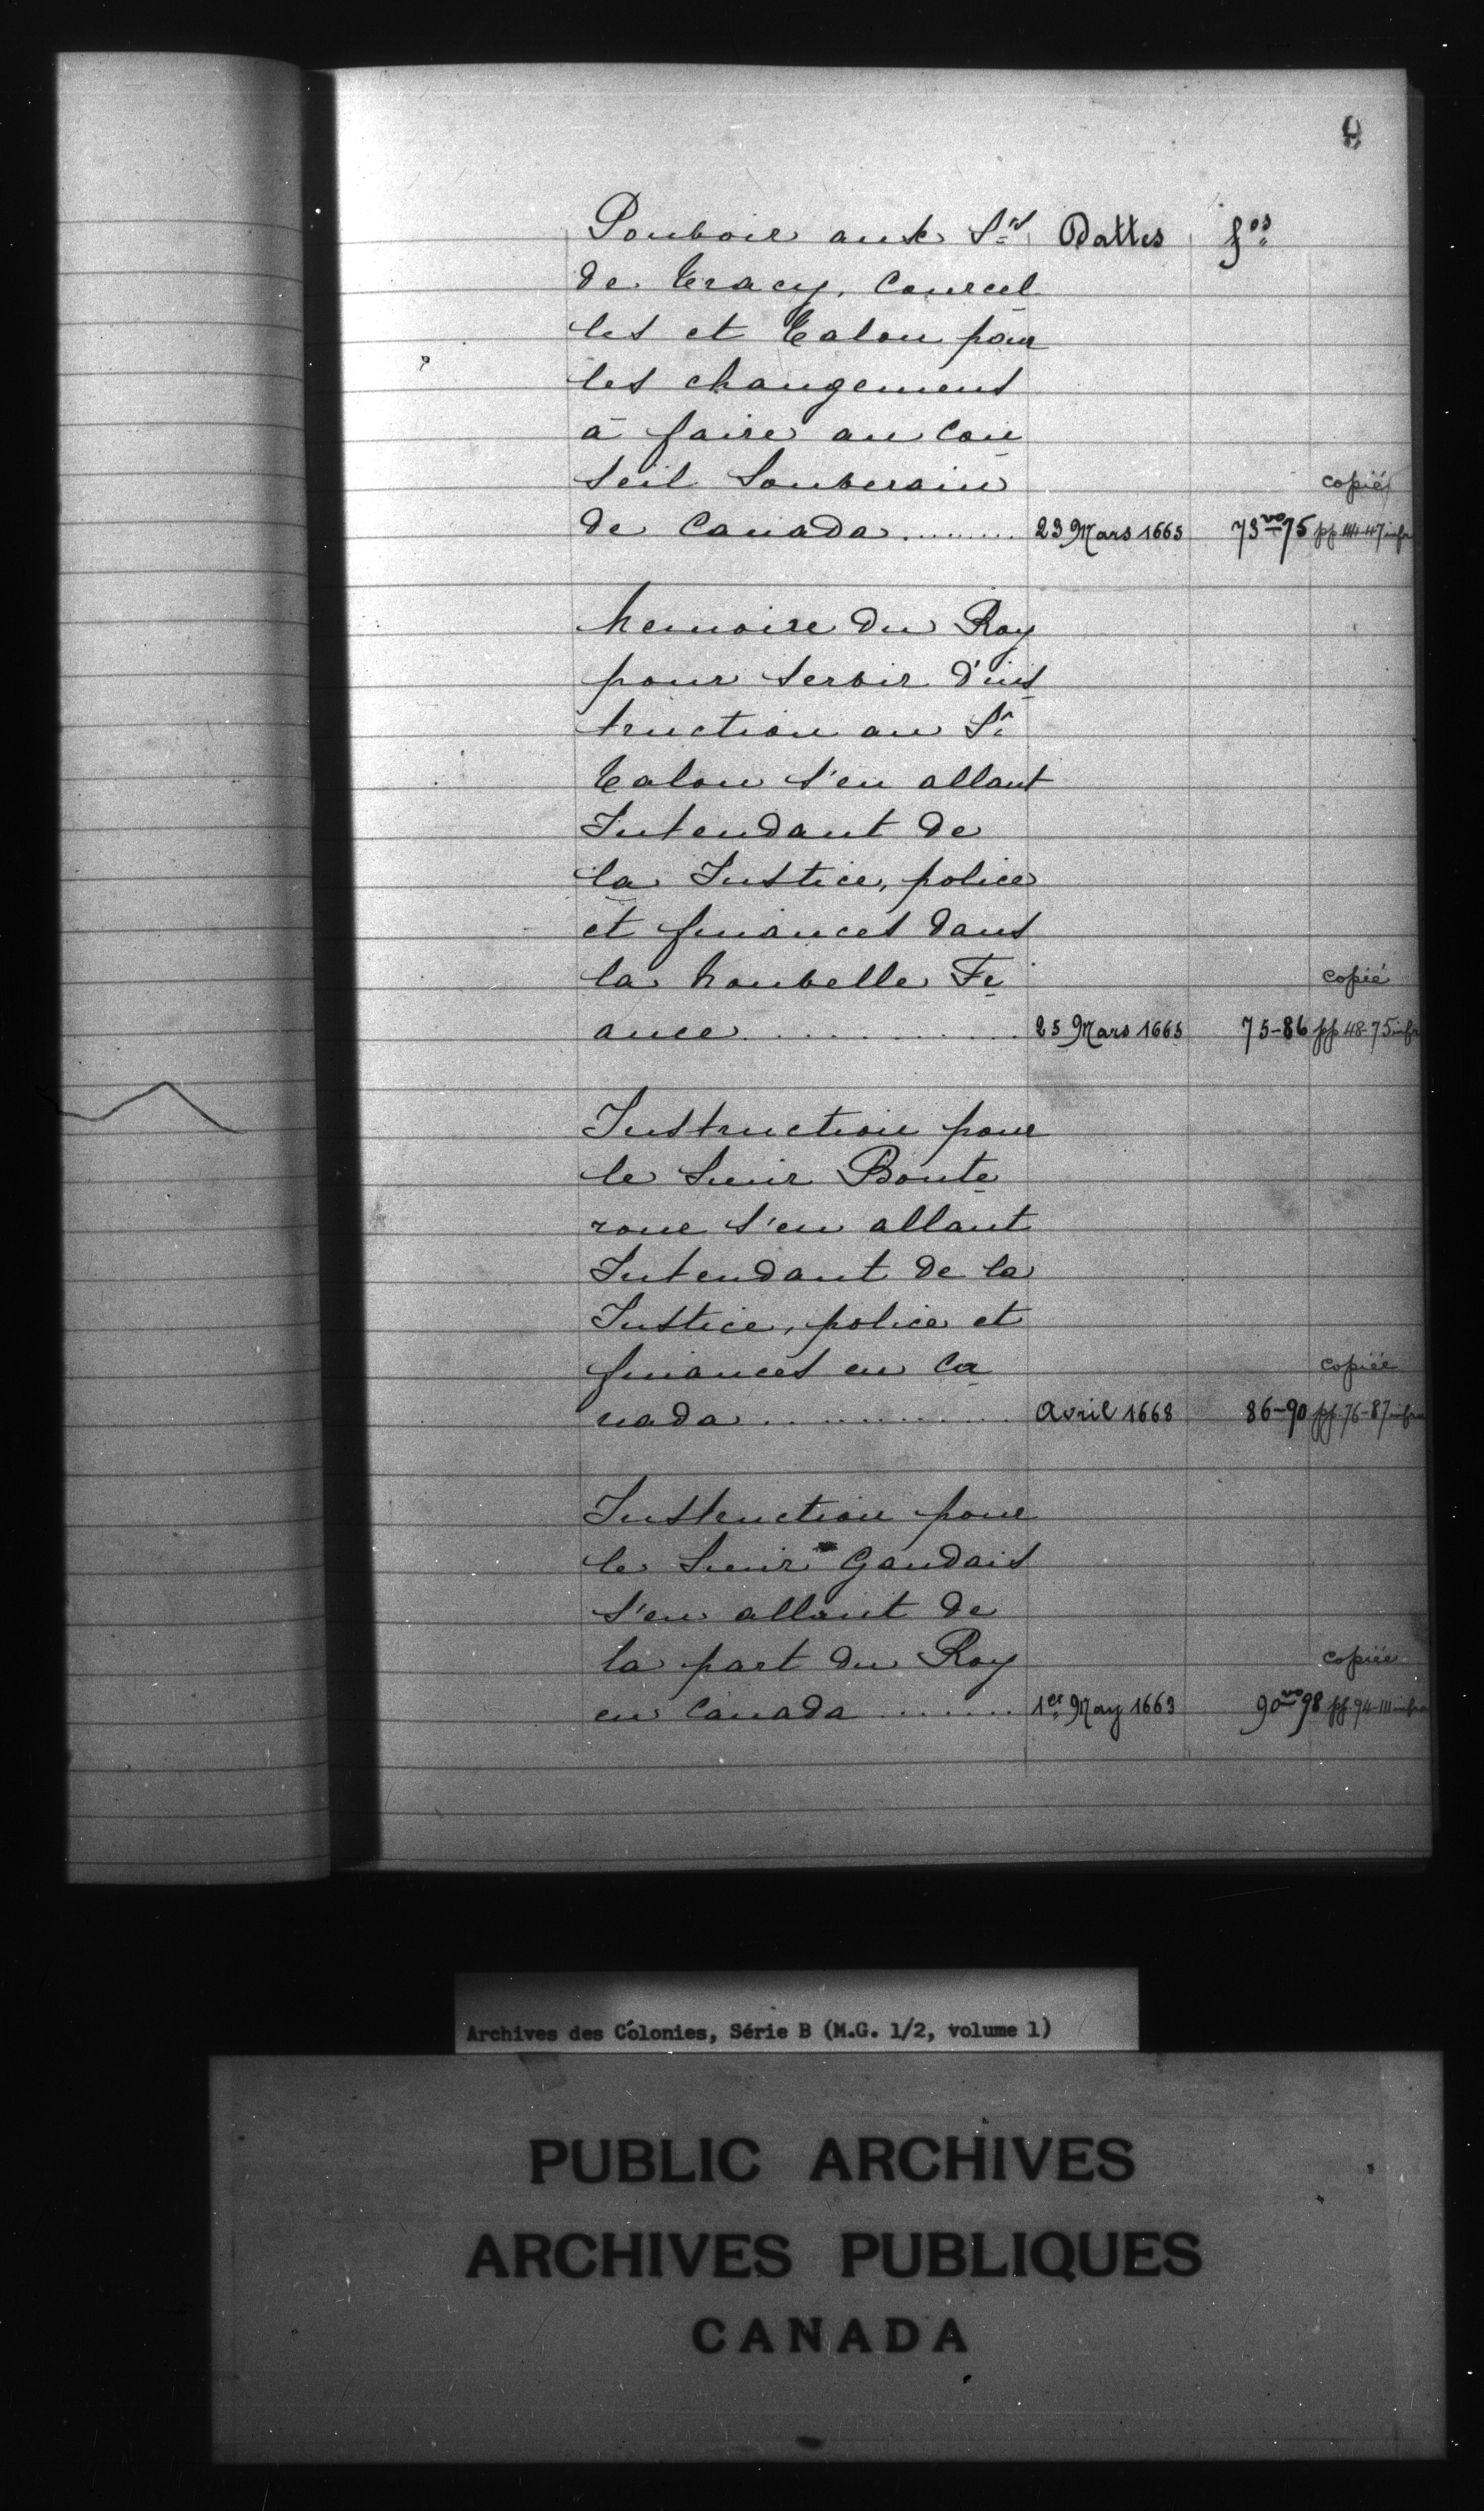 9
Pouvoir aux Srs Dattes fos
de Tracy, Courcel
les et Talon pour
les changemens
à faire au Con
seil Souverain copié
de Canada ........ 23 Mars 1665 73vo 75 pp 44-47 infra
Memoire du Roy
pour servir d'ins
truction au Sr
Talon s'en allant
Intendant de
la Justice, police
et finances dans
la nouvelle Fr copié
ance ............ 25 Mars 1665 75-86 pp 48-75 infra
Instruction pour
le Sieur Boute
roue s'en allant
Intendant de la
Justice, police et
finances en Ca copiée
nada ............ Avril 1668 86-90 pp. 76-87 infra
Instruction pour
le Sieur Gaudais
s'en allant de
la part du Roy copiée
en Canada ....... 1er May 1663 90vo 98 pp. 94-111 infra
Archives des Colonies, Série B (M.G. 1/2, volume 1)
PUBLIC ARCHIVES
ARCHIVES PUBLIQUES
CANADA